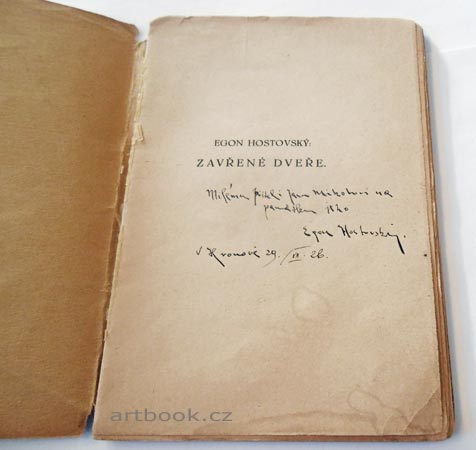 EGON HOSTOVSKÝ:
ZAVŘENÉ DVEŘE.
Milému příteli Janu na
památku jeho
Egon Hostovský.
V Hronově 29. 26.
artbook.cz